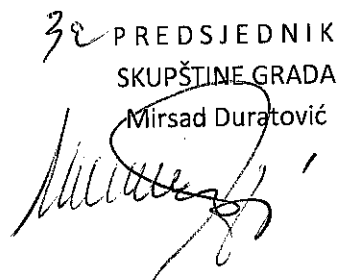 За PREDSJEDNIK
SKUPŠTINE GRADA
Mirsad Duratović